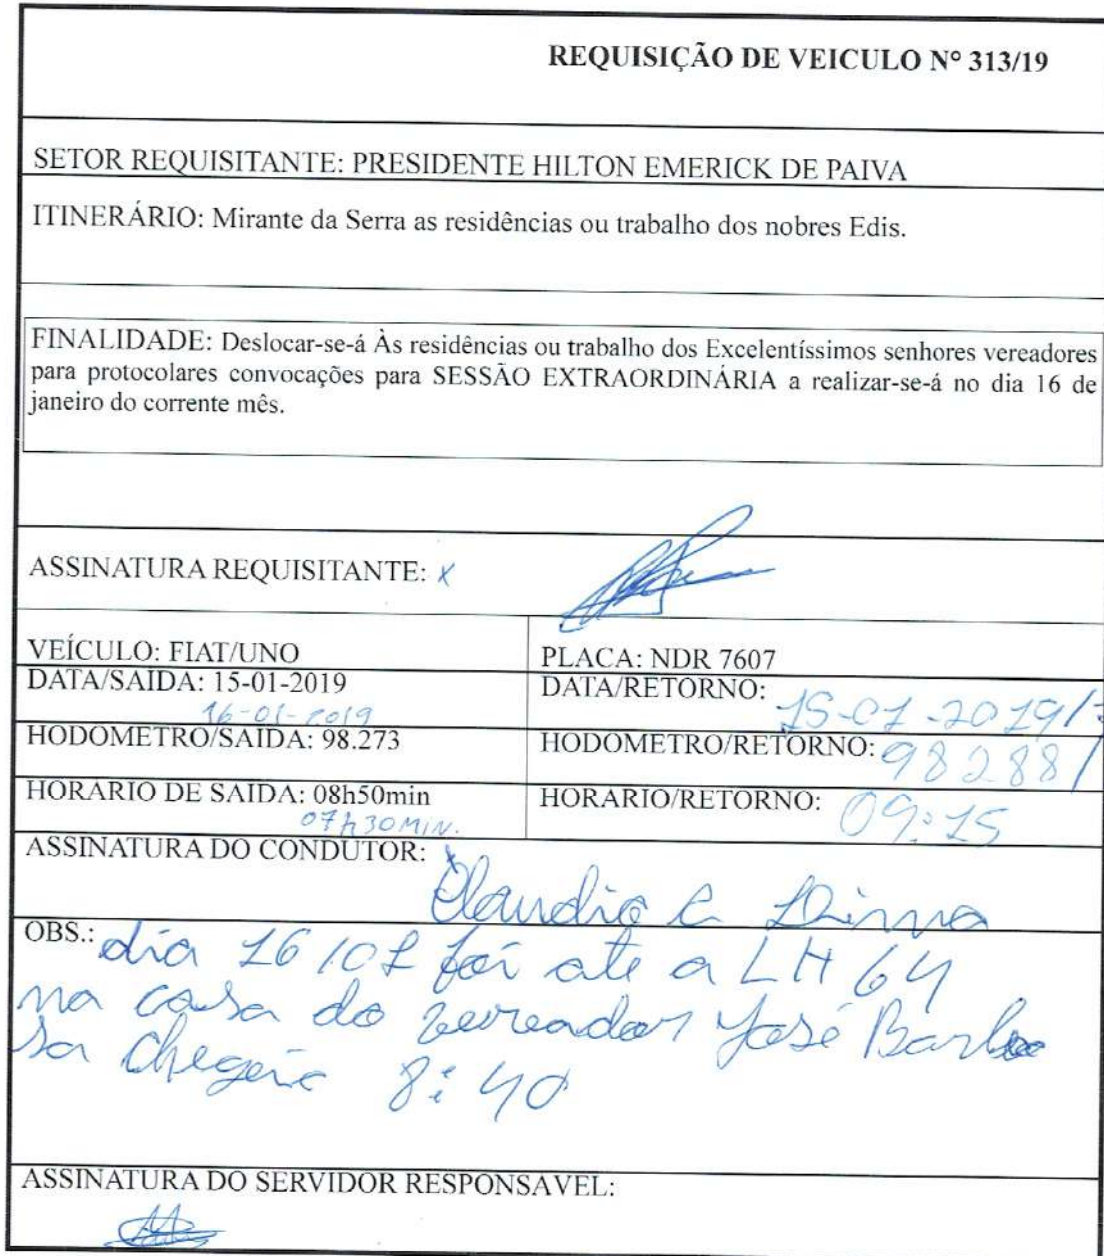 REQUISIÇÃO DE VEICULO Nº 313/19
SETOR REQUISITANTE: PRESIDENTE HILTON EMERICK DE PAIVA
ITINERÁRIO: Mirante da Serra as residências ou trabalho dos nobres Edis.
FINALIDADE: Deslocar-se-á Às residências ou trabalho dos Excelentíssimos senhores vereadores
para protocolares convocações para SESSÃO EXTRAORDINÁRIA a realizar-se-á no dia 16 de
janeiro do corrente mês.
ASSINATURA REQUISITANTE: x
VEÍCULO: FIAT/UNO
PLACA: NDR 7607
DATA/SAIDA: 15-01-2019
16-01-2019
DATA/RETORNO: 15-01-2019/
HODOMETRO/SAÍDA: 98.273
HODOMETRO/RETORNO: 98288/
HORARIO DE SAIDA: 08h50min
07h30MIN.
HORARIO/RETORNO: 09:15
ASSINATURA DO CONDUTOR: x
Claudio C
OBS.: dia 16/01 foi ate a LH 64
na casa do vereador José Barbo
sa 8:40
ASSINATURA DO SERVIDOR RESPONSAVEL: